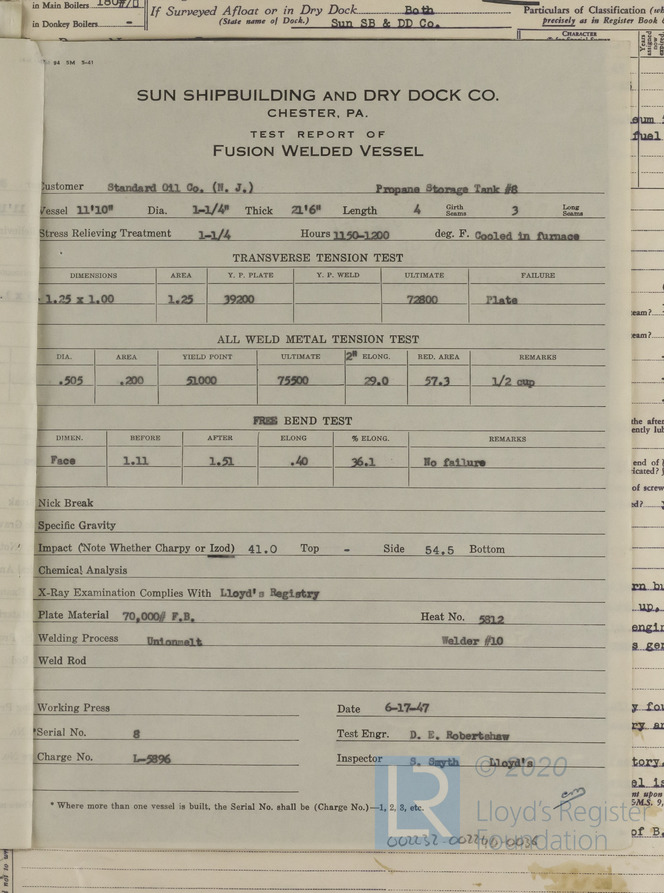 in Main Boilers 180#/0
in Donkey Boilers –
If Surveyed Afloat or in Dry Dock Both
(State name of Dock.) Sun SB & DD Co.
Particulars of Classification
precisely as in Register Book
CHARACTER
84 5M 5-41
SUN SHIPBUILDING AND DRY DOCK CO.
CHESTER, PA.
TEST REPORT OF
FUSION WELDED VESSEL
Customer Standard Oil Co. (N. J.) Propane Storage Tank #8
Vessel 11'10" Dia. 1-1/4" Thick 21'6" Length 4 Girth Seams 3 Long Seams
Stress Relieving Treatment 1-1/4 Hours 1150-1200 deg. F. Cooled in furnace
TRANSVERSE TENSION TEST
DIMENSIONS AREA Y. P. PLATE Y. P. WELD ULTIMATE FAILURE
1.25 x 1.00 1.25 39200 72800 Plate
ALL WELD METAL TENSION TEST
DIA. AREA YIELD POINT ULTIMATE 2" ELONG. RED. AREA REMARKS
.505 .200 51000 75500 29.0 57.3 1/2 cup
FREE BEND TEST
DIMEN. BEFORE AFTER ELONG % ELONG. REMARKS
Face 1.11 1.51 .40 36.1 No failure
Nick Break
Specific Gravity
Impact (Note Whether Charpy or Izod) 41.0 Top - Side 54.5 Bottom
Chemical Analysis
X-Ray Examination Complies With Lloyd's Registry
Plate Material 70,000# F.B. Heat No. 5812
Welding Process Unionmelt Welder #10
Weld Rod
Working Press Date 6-17-47
*Serial No. 8 Test Engr. D. E. Robertshaw
Charge No. L-5896 Inspector S. Smyth Lloyd's
* Where more than one vessel is built, the Serial No. shall be (Charge No.)—1, 2, 3, etc.
LR © 2020
Lloyd's Register
Foundation